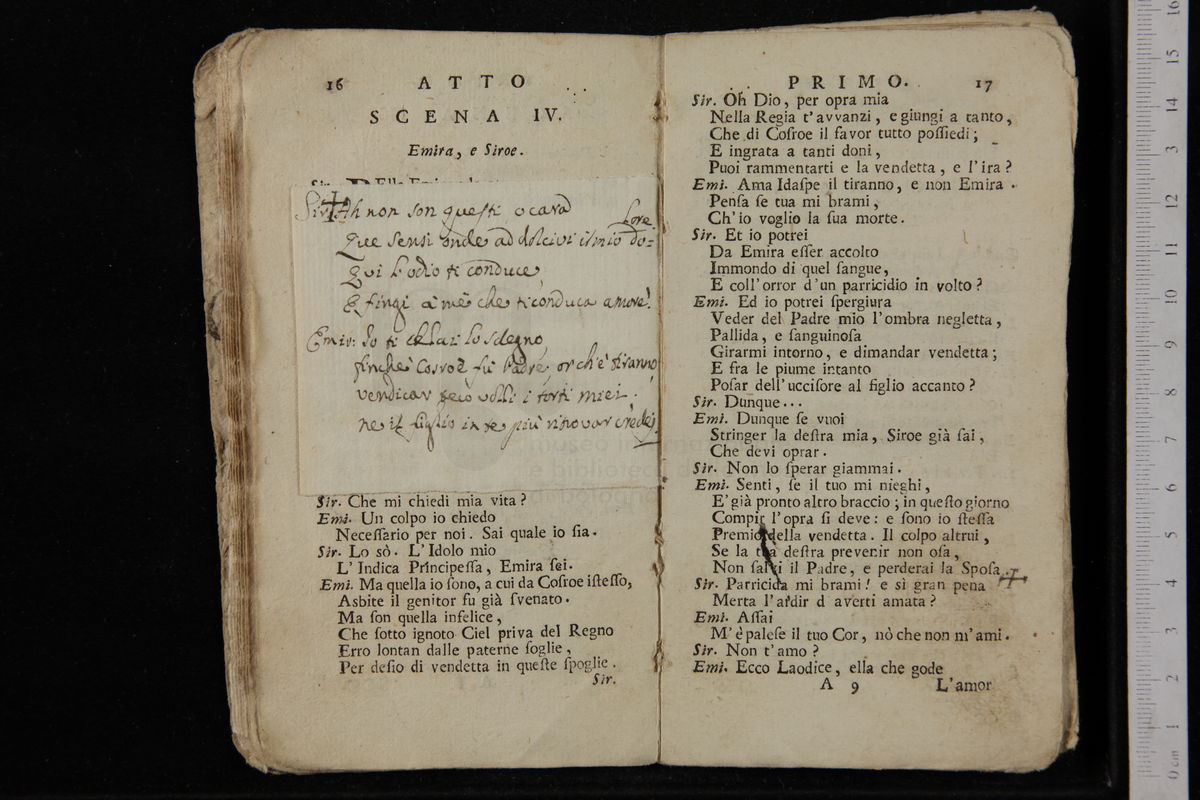 16 ATTO
SCENA IV.
Emira, e Siroe.
Sir. Ah non son questi o cara
Que sensi onde addolcivi il mio do=
lore.
Qui l'odio ti conduce,
E fingi à mè che ti conduca amore!
Emir: Io ti celai lo sdegno,
finchè Cosroe fù Padre, or ch'è tiranno
vendicar teco volli i torti miei.
ne il figlio in te più ritrovar credei
Sir. Che mi chiedi mia vita?
Emi. Un colpo io chiedo
Neceſſario per noi. Sai quale io ſia.
Sir. Lo sò. L'Idolo mio
L'Indica Principeſſa, Emira ſei.
Emi. Ma quella io ſono, a cui da Coſroe iſteſſo,
Asbite il genitor fu già ſvenato.
Ma ſon quella infelice,
Che ſotto ignoto Ciel priva del Regno
Erro lontan dalle paterne ſoglie,
Per deſio di vendetta in queſte ſpoglie.
Sir.
PRIMO. 17
Sir. Oh Dio, per opra mia
Nella Regia t'avvanzi, e giungi a tanto,
Che di Coſroe il favor tutto poſſiedi;
E ingrata a tanti doni,
Puoi rammentarti e la vendetta, e l'ira?
Emi. Ama Idaſpe il tiranno, e non Emira.
Penſa ſe tua mi brami,
Ch'io voglio la ſua morte.
Sir. Et io potrei
Da Emira eſſer accolto
Immondo di quel ſangue,
E coll'orror d'un parricidio in volto?
Emi. Ed io potrei ſpergiura
Veder del Padre mio l'ombra negletta,
Pallida, e ſanguinoſa
Girarmi intorno, e dimandar vendetta;
E fra le piume intanto
Poſar dell'ucciſore al figlio accanto?
Sir. Dunque...
Emi. Dunque ſe vuoi
Stringer la deſtra mia, Siroe già ſai,
Che devi oprar.
Sir. Non lo ſperar giammai.
Emi. Senti, ſe il tuo mi nieghi,
E'già pronto altro braccio; in queſto giorno
Compir l'opra ſi deve: e ſono io ſteſſa
Premio della vendetta. Il colpo altrui,
Se la tua deſtra prevenir non oſa,
Non ſalvi il Padre, e perderai la Spoſa.
Sir. Parricida mi brami! e sì gran pena
Merta l'ardir d'averti amata?
Emi. Aſſai
M'è paleſe il tuo Cor, nò che non m'ami.
Sir. Non t'amo?
Emi. Ecco Laodice, ella che gode
A 9 L'amor